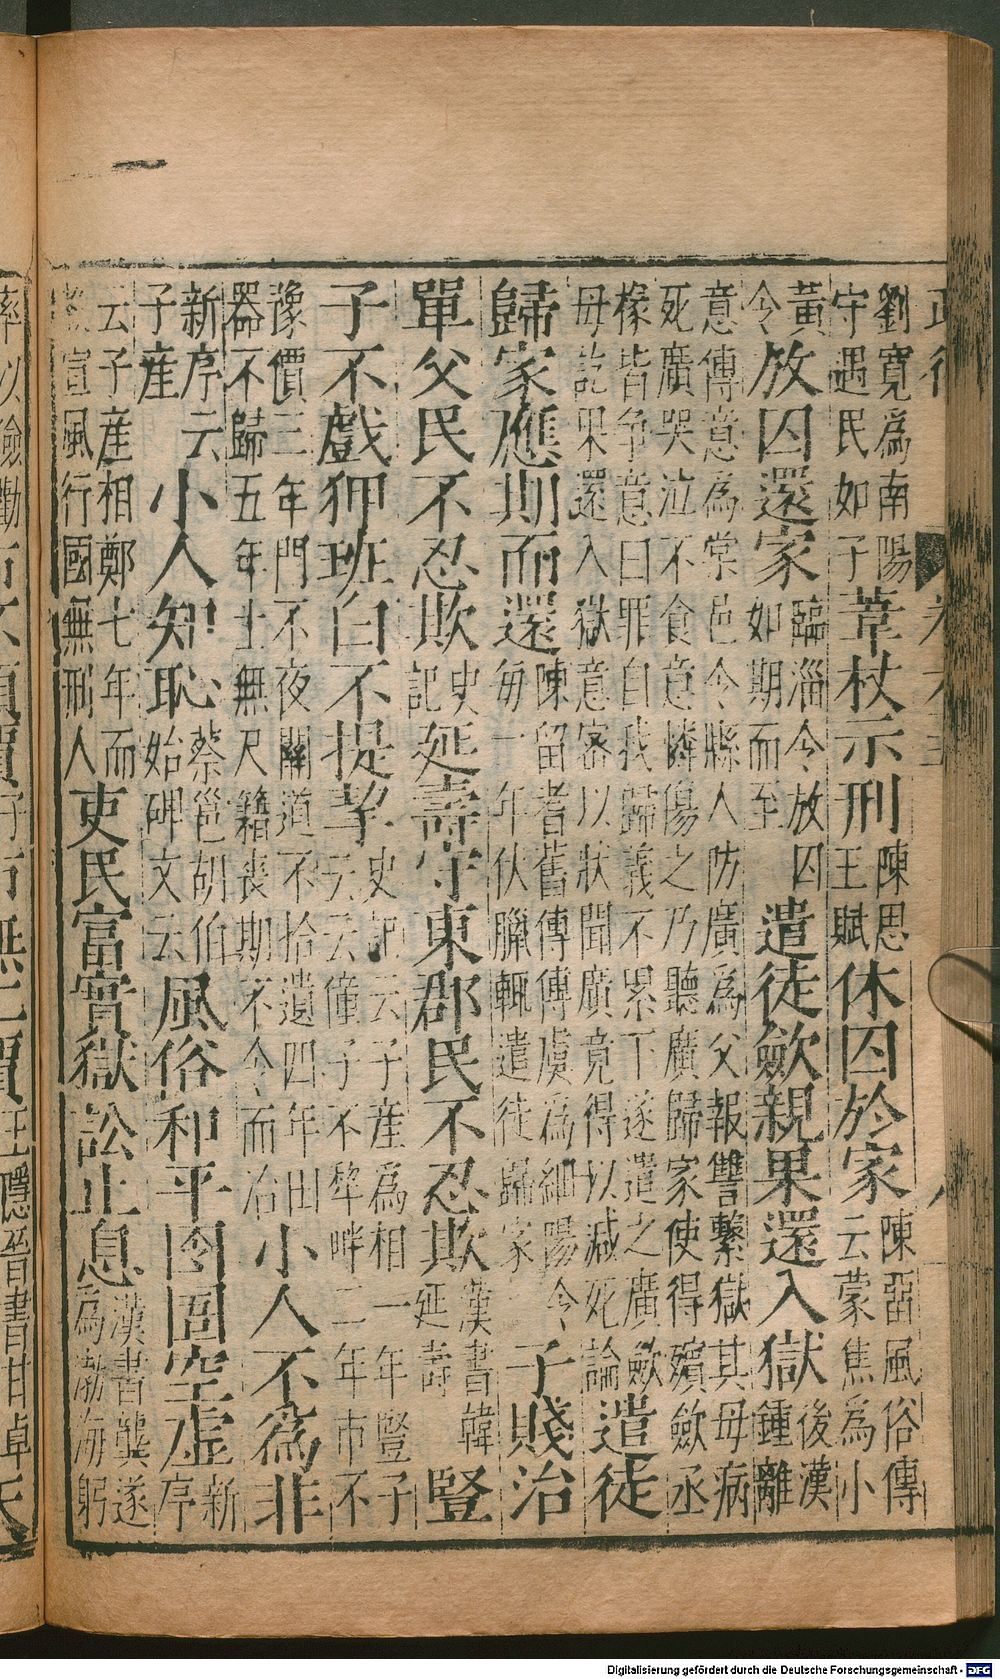 劉寬為南陽
守遇民如子
葦杖示刑
陳思
王賦
休囚於家
陳畱風俗傳
云蒙焦為小
黃
令
放囚還家
臨淄令放囚
如期而至
遣徒歛親果還入獄
後漢
鍾離
意傳意為棠邑令縣人防廣為父報讐繫獄其母病
死廣哭泣不食意憐傷之乃聽廣歸家使得殯歛丞
椽皆争意曰罪自我歸義不累下遂遣之廣歛
母訖果還入獄意密以狀聞廣竟得以減死論
遣徒
歸家應期而還
陳留耆舊傳傳虞為細陽令
每一年伏臘輙遣徒歸家
子賤治
單父民不忍欺
史
記
延壽守東郡民不忍欺
漢書韓
延壽
豎
子不戲狎班白不提挈
史記云子產為相一年豎子
云云僮子不犂畔二年市不
豫價三年門不夜關道不拾遺四年田
器不歸五年士無尺籍喪期不令而治
小人不為非
新序云
子產
小人知恥
蔡邕胡伯
始碑文云
風俗和平囹圄空虛
新
序
云子產相鄭七年而
宣風行國無刑人
吏民富實獄訟止息
漢書龔遂
為渤海躬
率以儉勸
王隱晉書甘卓
Digitalisierung gefördert durch die Deutsche Forschungsgemeinschaft - DFG